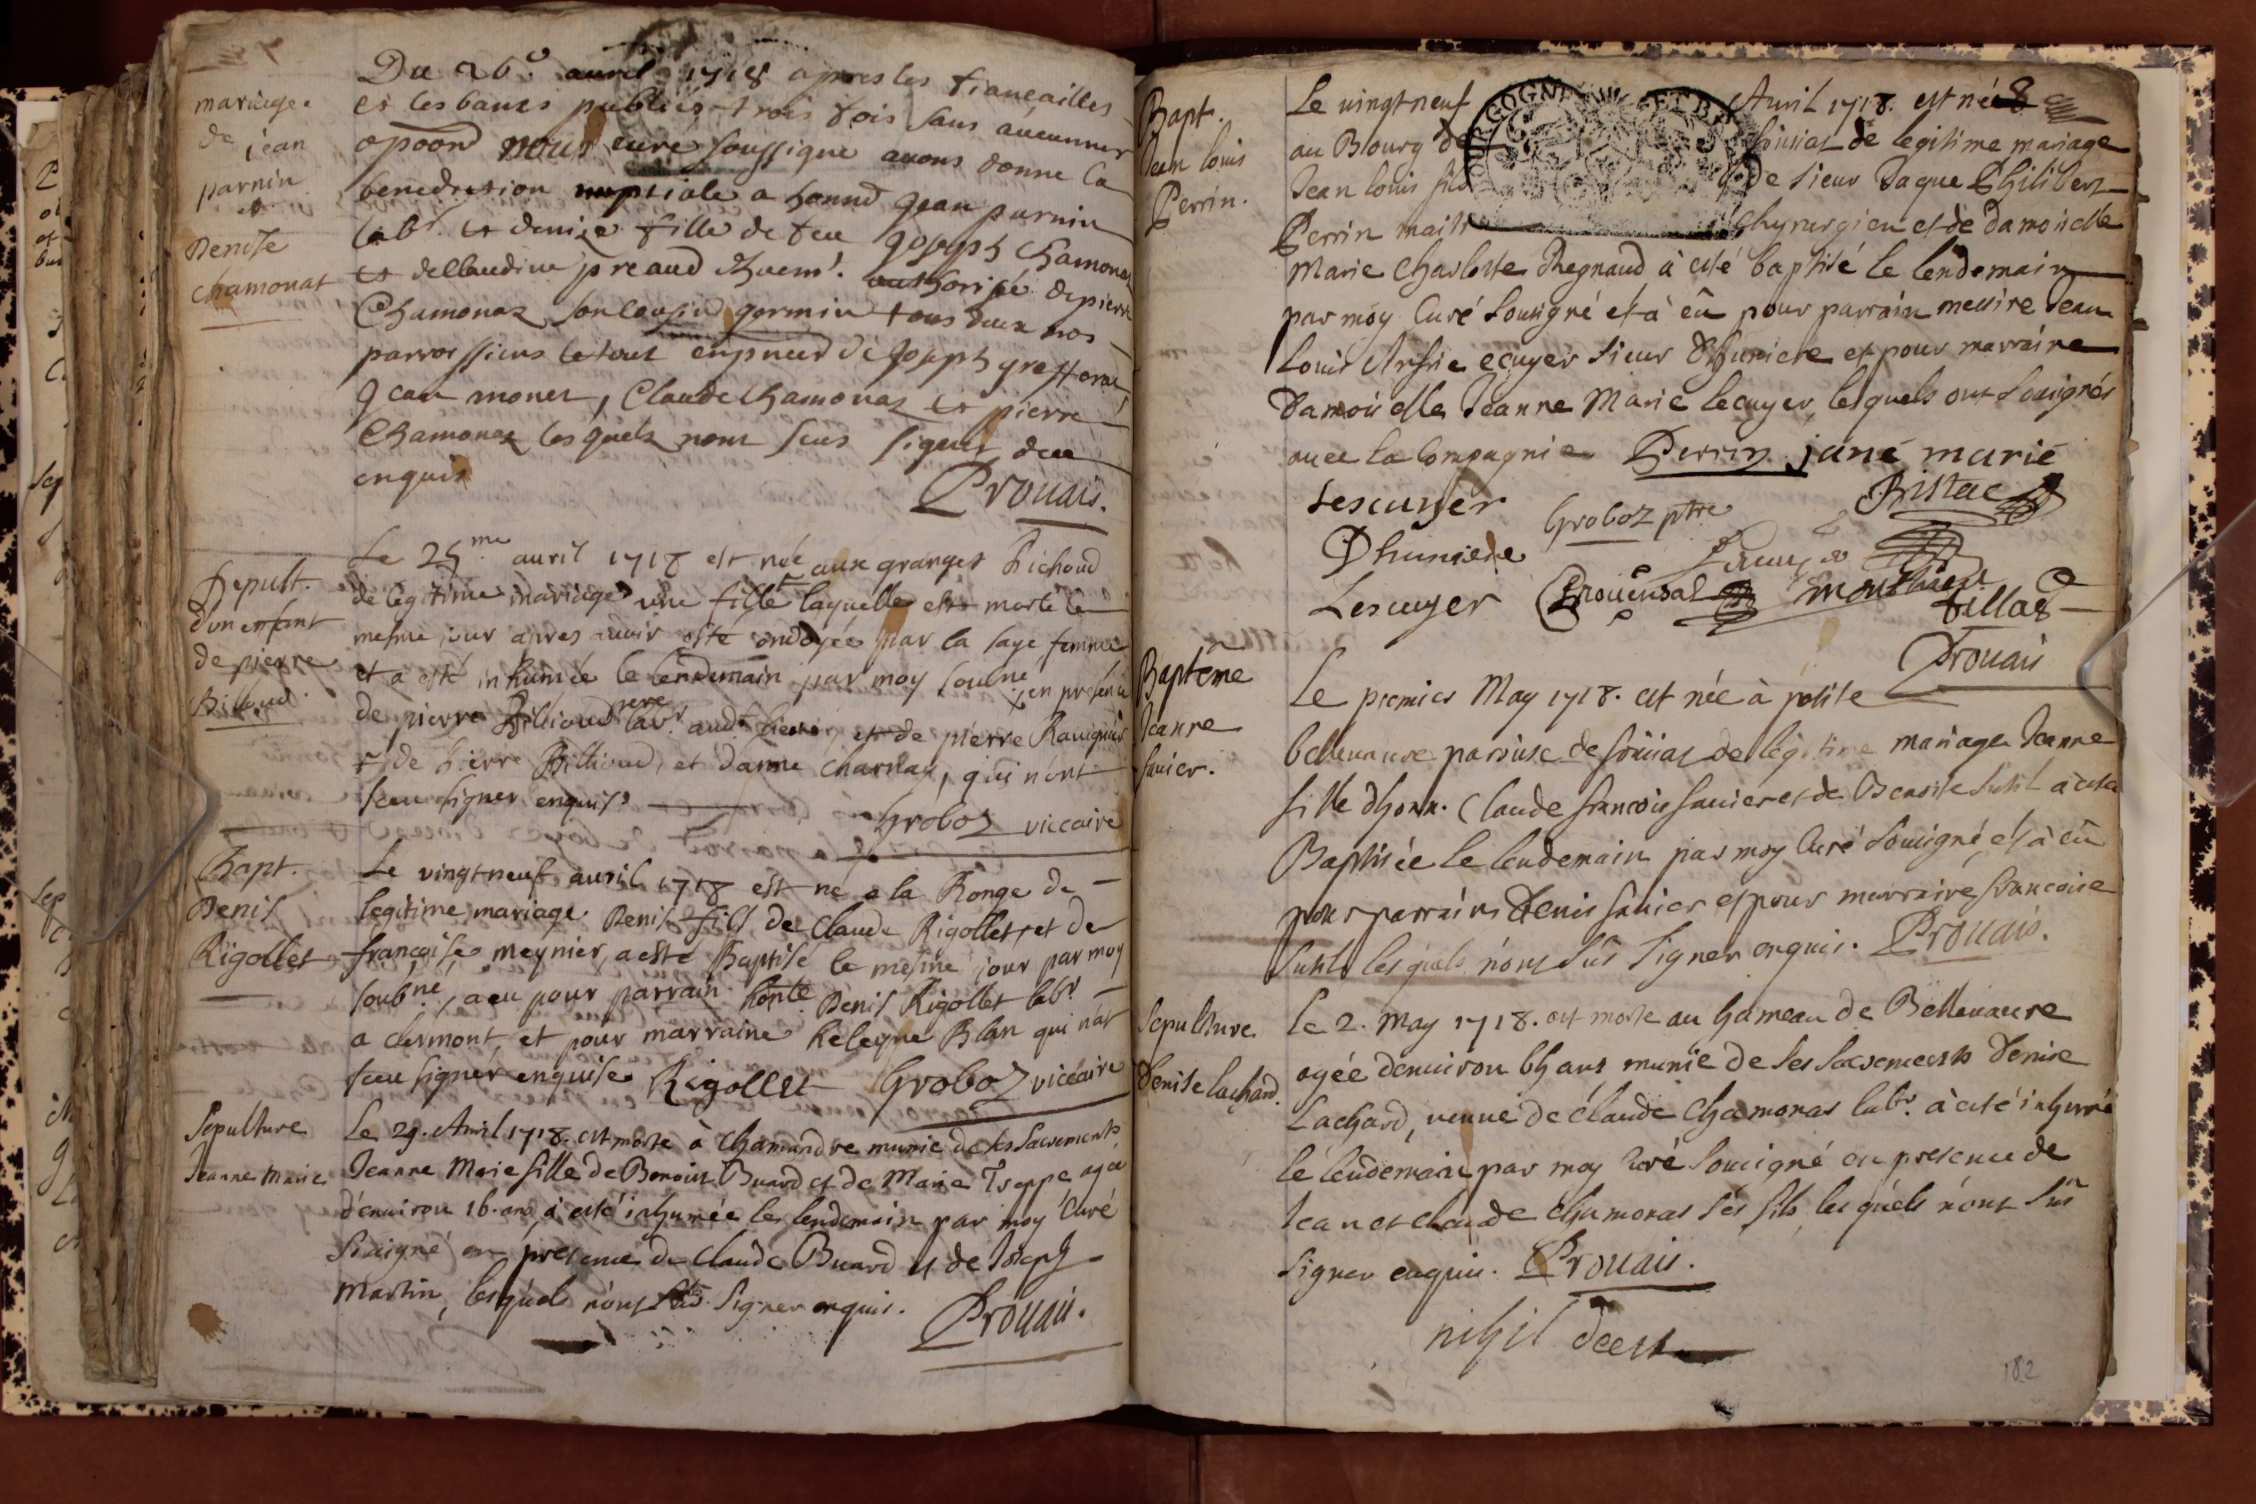 mariage
de jean
parnin
et
Denise
chamonat
Du 26e auril 1718 apres les fiancailles
et les bancs publiés trois fois sans aucunnes
opoond nous curé soussigne auons donne la
benediction nuptiale a honned Jean parnin
labr. et denize fille de feu Joseph Chamonaz
et dellaudine preaud authorisé de pierre
Chamonaz son cousin germin tous deux nos
parroissiens le tout en pnce de Joseph
Jean monet, Claude Chamonaz et pierre
Chamonaz les quelz nont sceu signer deu
enquis
Prouais.
Sepult.
d'un enfant
de pierre
Billioud
Le 25me auril 1718 est née aux granges Pichoud
de legitime mariage une fille laquelle est morte le
mesme iour apres auoir esté ondoyée par la sage femme
et a esté inhumée le lendemain par moy soubné en presence
de pierre Billioud pere labr. aud. et de pierre
de Pierre Billioud, et d'anne charnay, qui n'ont
sceu signer enquis
Groboz viccaire
Bapt.
Denis
Rigollet
Le vingt neuf auril 1718 est né a la Ronge de
legitime mariage Denis fils de Claude Rigollet, et de
françoise meynier, a esté Baptisé le mesme jour par moy
soubné, a eu pour parrain honte Denis Rigollet labr
a clermont, et pour marraine Blan qui n'at
sceu signer enquise Rigollet Groboz viccaire
Sepulture
Jeanne Marie
Le 29. Auril 1718. est morte à Chamandre munie de ses Sacrements
Jeanne Marie fille de Benoist Buard et de Marie agée
d'enuiron 16. ans, à esté inhumée le lendemain par moy Curé
Sousigné en presence de Claude Buard et de Joseph
Martin, lesquels n'ont sceu signer enquis. Prouais.
Bapt.
Jean louis
Perrin.
Le uingt neuf Auril 1718. est né
au Bourg de de legitime mariage
Jean louis fils de sieur Jaque Philibert
Perrin maitre Chyrurgien et de damoiselle
Marie Charlotte Regnaud à esté baptisé le lendemain
par moy Curé Sousigné et à eû pour parrain messire Jean
Louis ecuyer sieur d'hunicre et pour marraine
Damoiselle Jeanne Marie lecuyer, lesquels ont Sousignés
auec la Compagnie Perrin jane marie
Lescuyer Groboz ptre
Dhuniere
Lescuyer Prouensal
fillaz
Prouais
Baptême
Jeanne
sauier.
Le premier May 1718. est née à petite
belleuaure paroisse de de legitime mariage Jeanne
fille d'honn. Claude francois sauier et de Benoite à esté
Baptisée le lendemain par moy Curé Sousigné, et à eû
pour parrain Denis sauier et pour marraine francoise
lesquels n'ont sceu signer enquis. Prouais.
Sepulture
Denise Lachard.
Le 2. May 1718. est morte au hameau de Belleuaure
agée d'enuiron ans munie de ses Sacrements Denise
Lachard, veuue de Claude Chamonas labr. à esté inhumé
le lendemain par moy Curé Sousigné en presence de
Jean et Claude Chamonas ses fils, lesquels n'ont sceu
signer enquis. Prouais.
nihil deest
182